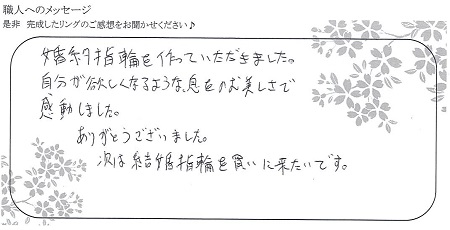 職人へのメッセージ
是非 完成したリングのご感想をお聞かせください♪
婚約指輪を作っていただきました。
自分が欲しくなるような、息をのむ美しさで
感動しました。
ありがとうございました。
次は結婚指輪を買いに来たいです。